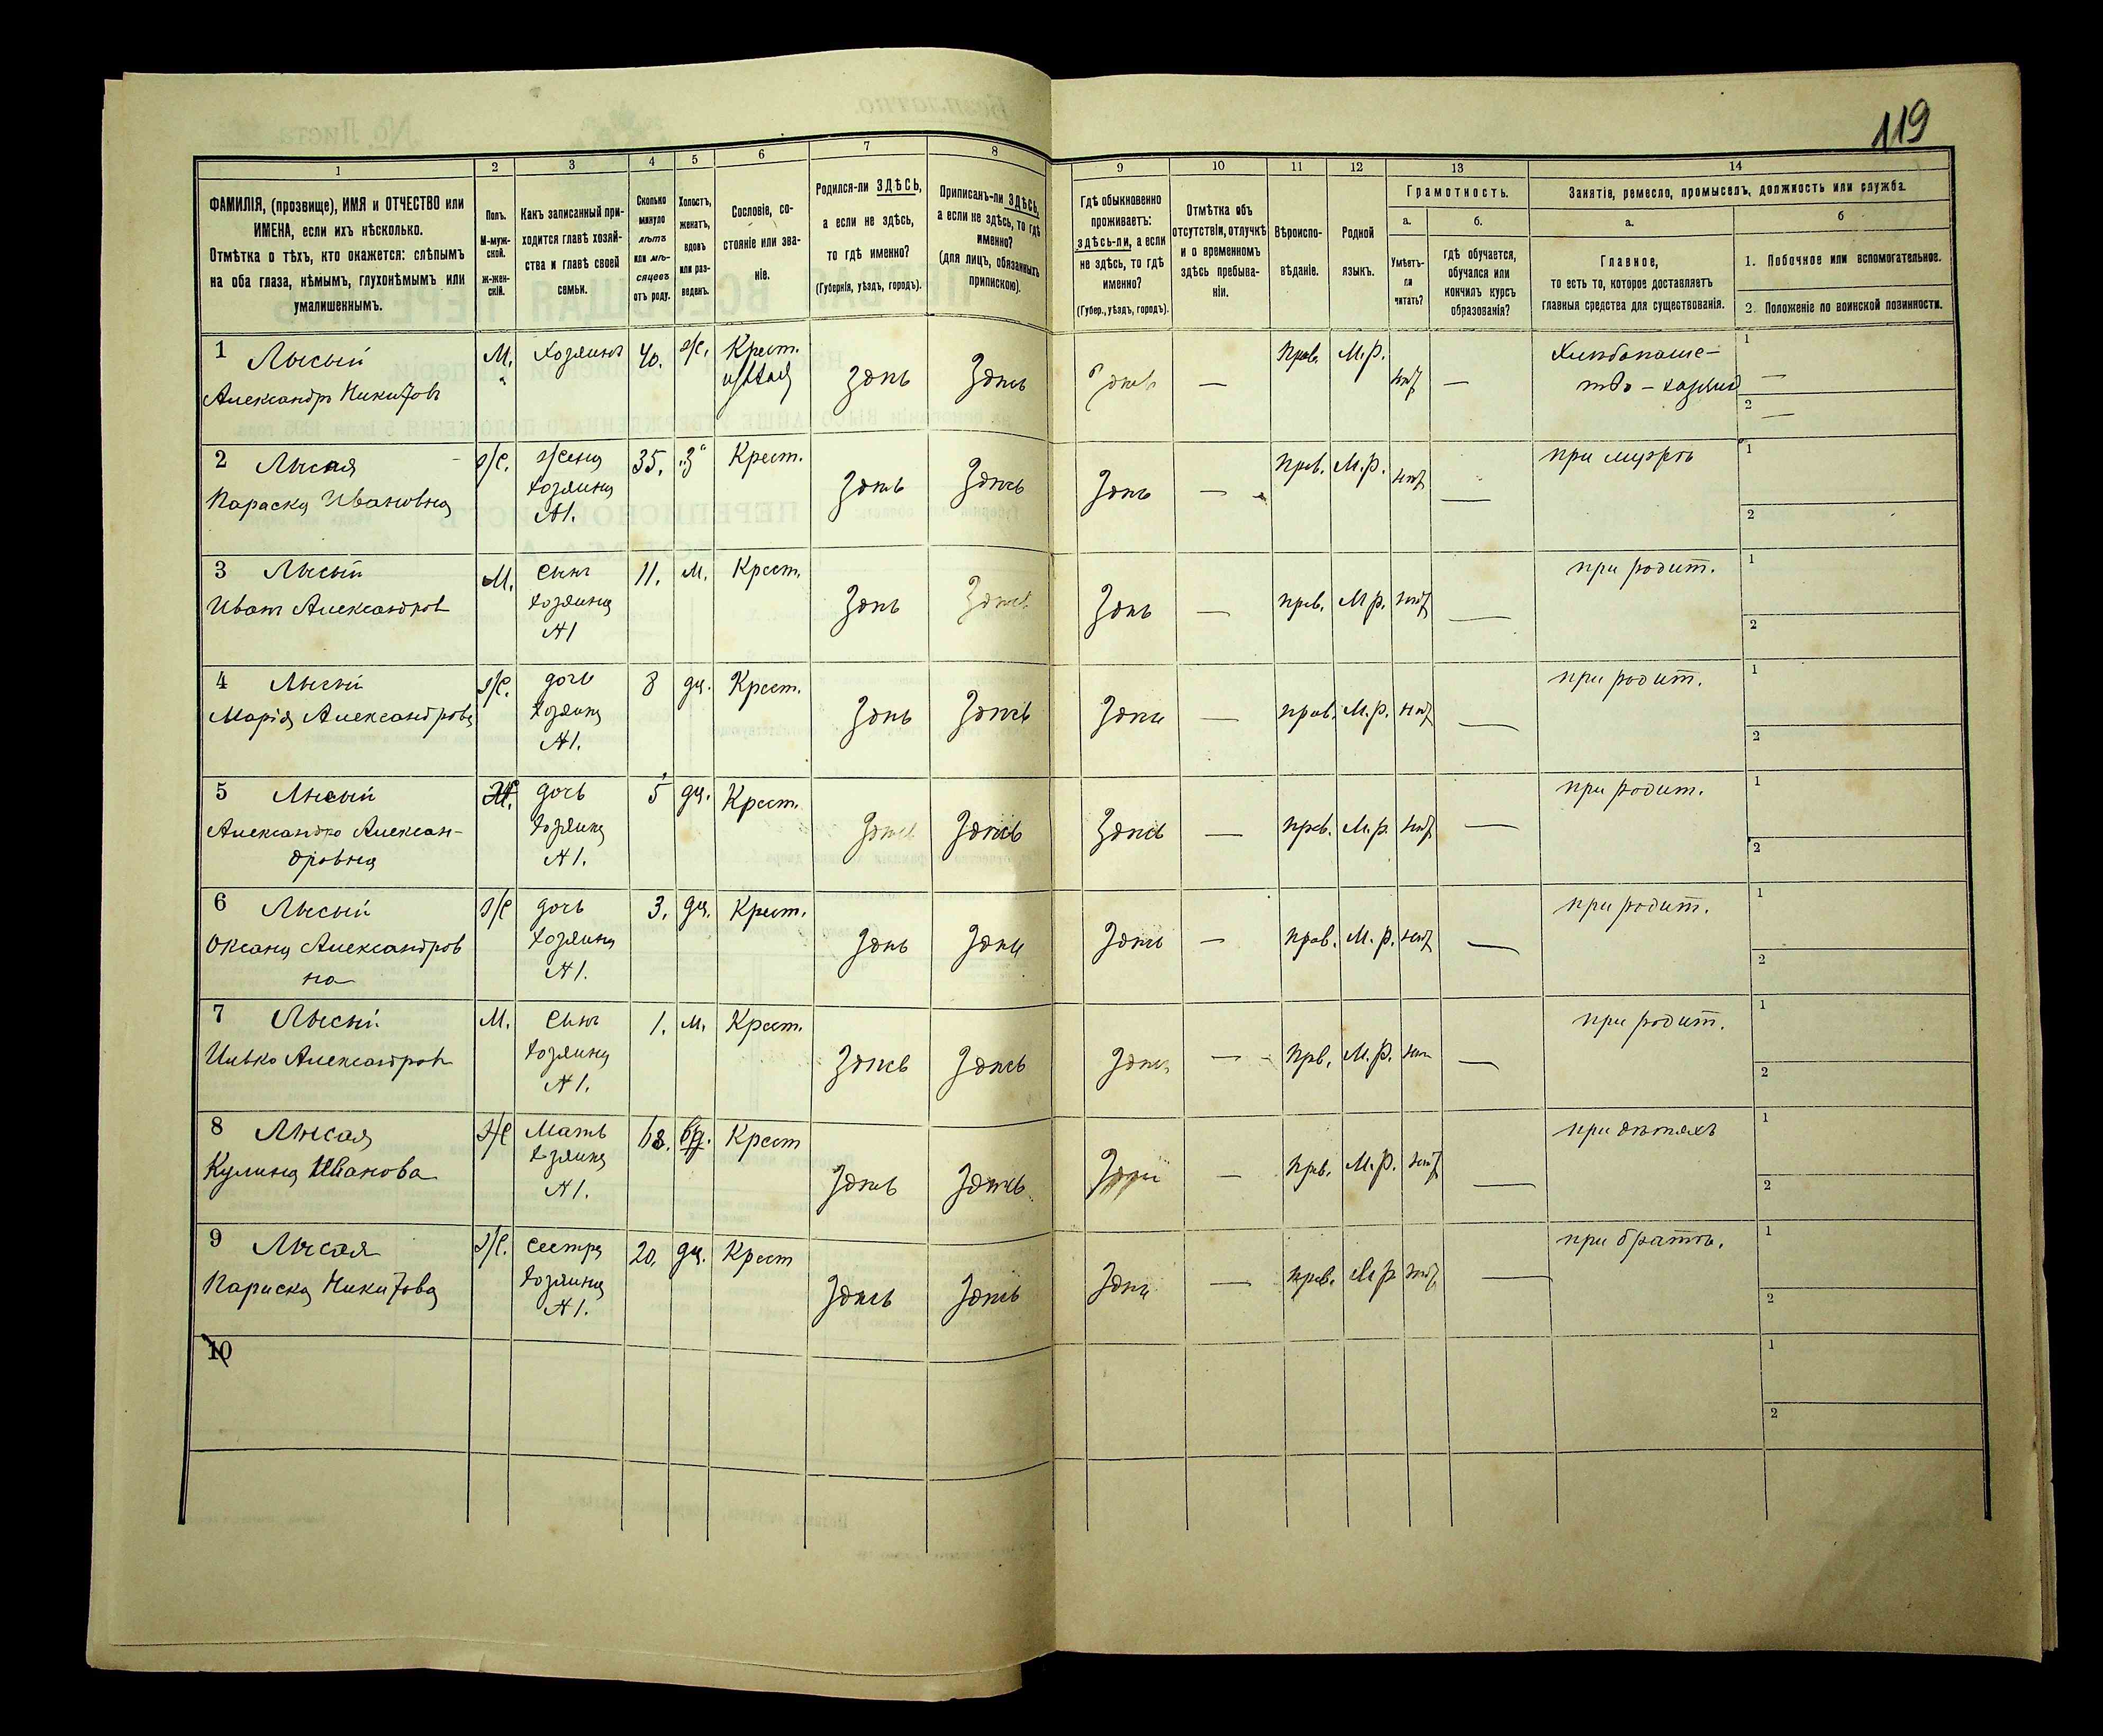 119
1 2 3 4 5 6 7 8 9 10 11 12 13 14
ФАМИЛІЯ, (прозвище), ИМЯ и ОТЧЕСТВО или
ИМЕНА, если ихъ нѣсколько.
Отмѣтка о тѣхъ, кто окажется: слѣпымъ
на оба глаза, нѣмымъ, глухонѣмымъ или
умалишеннымъ.
Полъ.
М-муж-
ской.
ж-жен-
скій.
Какъ записанный при-
ходится главѣ хозяй-
ства и главѣ своей
семьи.
Сколько
минуло
лѣтъ
или мѣ-
сяцевъ
отъ роду.
Холостъ,
женатъ,
вдовъ
или раз-
веденъ.
Сословіе, со-
стояніе или зва-
ніе.
Родился-ли ЗДѢСЬ,
а если не здѣсь,
то гдѣ именно?
(Губернія, уѣздъ, городъ).
Приписанъ-ли ЗДѢСЬ,
а если не здѣсь, то гдѣ
именно?
(для лицъ, обязанныхъ
припискою).
Гдѣ обыкновенно
проживаетъ:
здѣсь-ли, а если
не здѣсь, то гдѣ
именно?
(Губер., уѣздъ, городъ).
Отмѣтка объ
отсутствіи, отлучкѣ
и о временномъ
здѣсь пребыва-
ніи.
Вѣроиспо-
вѣданіе.
Родной
языкъ.
Грамотность.
а.
Умѣетъ-
ли
читать?
б.
гдѣ обучается,
обучался или
кончилъ курсъ
образованія?
Занятіе, ремесло, промыселъ, должность или служба.
а.
Главное,
то есть то, которое доставляетъ
главныя средства для существованія.
б
1. Побочное или вспомогательное.
2. Положеніе по воинской повинности.
1 Лысый М. Хозяинъ 40. ж. Крест. Здѣсь Здѣсь — Прв. М.р. нѣт — Хлѣбопаше- 1 —
Александръ Никитовъ тво - хозяинъ 2 —
2 Лысая ж. жена 35. „з“ Крест. Здѣсь Здѣсь Здѣсь — Прв. М.р. нѣт — при мужѣ 1
Параска Ивановна хозяина 2
№1.
3 Лысый М. сынъ 11. м. Крест. Здѣсь Здѣсь Здѣсь — прв. М.р. нѣт — при родит. 1
Иванъ Александров хозяина 2
№1
4 Лысый ж. дочь 8 дц. Крест. Здѣсь Здѣсь Здѣсь — прав. М.р. нѣт — при родит. 1
Марія Александрова хозяина 2
№1.
5 Лысый ж. дочь 5 дц. Крест. Здѣсь Здѣсь Здѣсь — прв. М.р. нѣт — при родит. 1
Александра Алексан- хозяина 2
дровна №1.
6 Лысый ж дочь 3. дц. Крест. Здѣсь Здѣсь Здѣсь — прав. М.р. нѣт — при родит. 1
Оксана Александров хозяина 2
на №1.
7 Лысый М. сынъ 1. м. Крест. Здѣсь Здѣсь Здѣсь — прв. М.р. нѣт — при родит. 1
Илько Александров хозяина 2
№1.
8 Лысая ж Мать 68. вд. Крест Здѣсь Здѣсь Здѣсь — прв. М.р. нѣт — при дѣтяхъ 1
Кулина Иванова хозяина 2
№1.
9 Лысая ж. сестра 20. дц. Крест Здѣсь Здѣсь Здѣсь — прв. М.р нѣт — при братѣ. 1
Параска Никитова хозяина 2
№1.
10 1
2